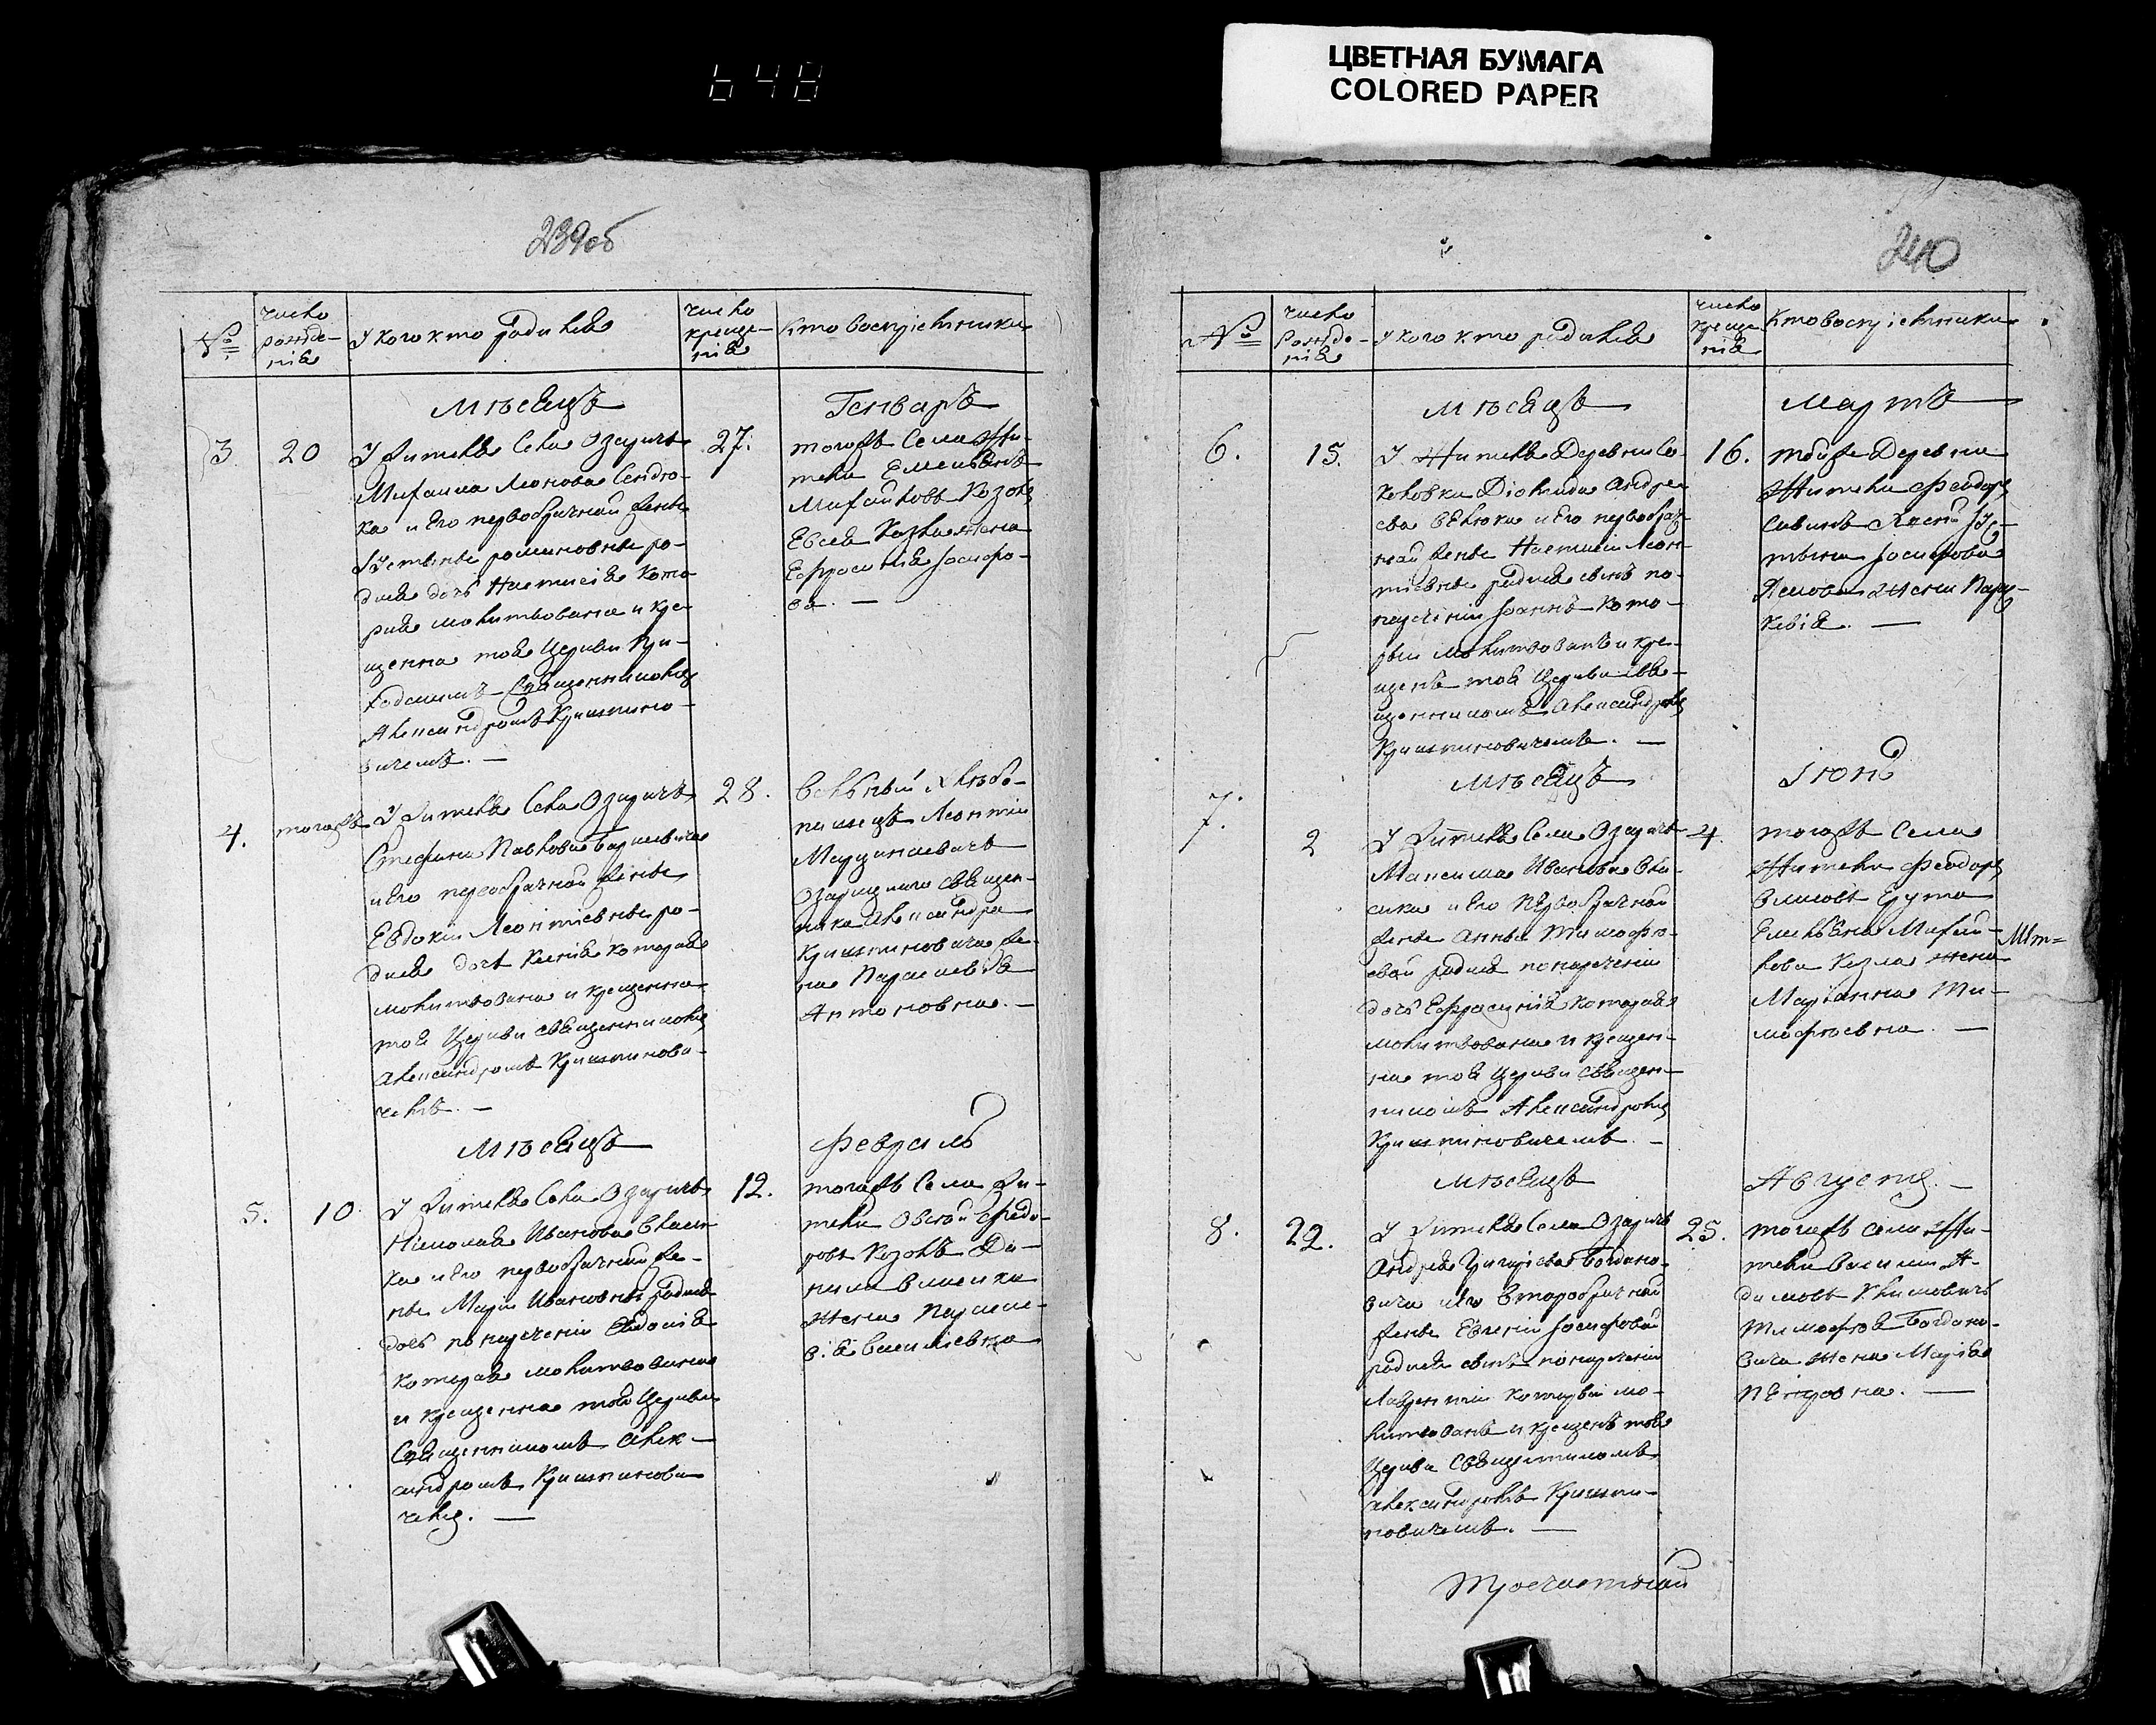 648
ЦВЕТНАЯ БУМАГА
COLORED PAPER
239об
№
число
рожде-
нія
У кого кто родился
число
креще-
нія
Кто воспріемники
Мѣсяцъ
Генварь
3.
20
У жителя села Озаричъ
Михаила Леонова Сендю-
ка и его первобрачной жены
Устиньи романовны ро-
дися дочь Настасія кото-
рая молитвована и кре-
щенна тоя церкви При-
ходскимъ Священникомъ
Александромъ Кришпино-
вичемъ. —
27.
тогожъ села жи-
тели Емельянъ
Михайловъ Козолъ
Евсея Козла жена
Ефросинія Іосифо-
ва. —
4.
тогожъ
У жителя села Озаричъ
Стефана Павлова
и его первобрачной жены
Евдокіи Леонтіевны ро-
дися дочь Ксенія которая
молитвована и крещенна
тоя Церкви священникомъ
Александромъ Кришпинови-
чемъ. —
28.
вольный
Леонтій
Марцинкевичъ
Озарицкаго священ-
ника Александра
Кришпиновича же-
на Параскевія
Антоновна. —
Мѣсяцъ
Февраль
5.
10.
У жителя села Озаричъ
Николая Иванова Власи-
ка и его первобрачной же-
ны Маріи Ивановны родися
дочь по нареченіи Евдокія
которая молитвована
и крещенна тоя Церкви
Священникомъ Алек-
сандромъ Кришпинови-
чемъ. —
12.
тогожъ села жи-
тели Федо-
ровъ Козолъ Да-
нила Власика
жена Параске-
вія Василіевна
240
№
число
рожде-
нія
У кого кто родился
число
креще-
нія
Кто воспріемники
Мѣсяцъ
Мартъ
6.
15.
У жителя Деревни Со-
коловки Діомида Андрее-
ва и его первобрач-
ной жены Настасіи Леон-
тіевны родися сынъ по
нареченіи Іоаннъ кото-
рый молитвованъ и кре-
щенъ тоя Церкви свя-
щенникомъ Александромъ
Кришпиновичемъ. —
16.
тойже Деревни
жители Феодоръ
Савинъ
Іосифова
жена Парас-
кевія. —
Мѣсяцъ
Іюнь
7.
2
У жителя Села Озаричъ
Максима Иванова Вла-
сика и его первобрачной
жены Анны Тимофе-
евой родися по нареченіи
дочь Ефросинія которая
молитвована и крещен-
на тоя Церкви священ-
никомъ Александромъ
Кришпиновичемъ. —
4.
тогожъ Села
жители Феодоръ
Емельяна Михай-
лова Козла жена
Маріанна Ти-
мофеевна. —
Мѣсяцъ
Августъ. —
8.
22.
У жителя Села Озаричъ
Андрея Григоріева Богдано-
вича и его второбрачной
жены Евгеніи Іосифовой
родися сынъ по нареченіи
Лаврентій который мо-
литвованъ и крещенъ тоя
Церкви священникомъ
Александромъ Кришпи-
новичемъ. —
25.
тогожъ села жи-
тели Василій А-
дамовъ Климовичъ
Тимофея Богдано-
вича жена Марія
Петровна. —